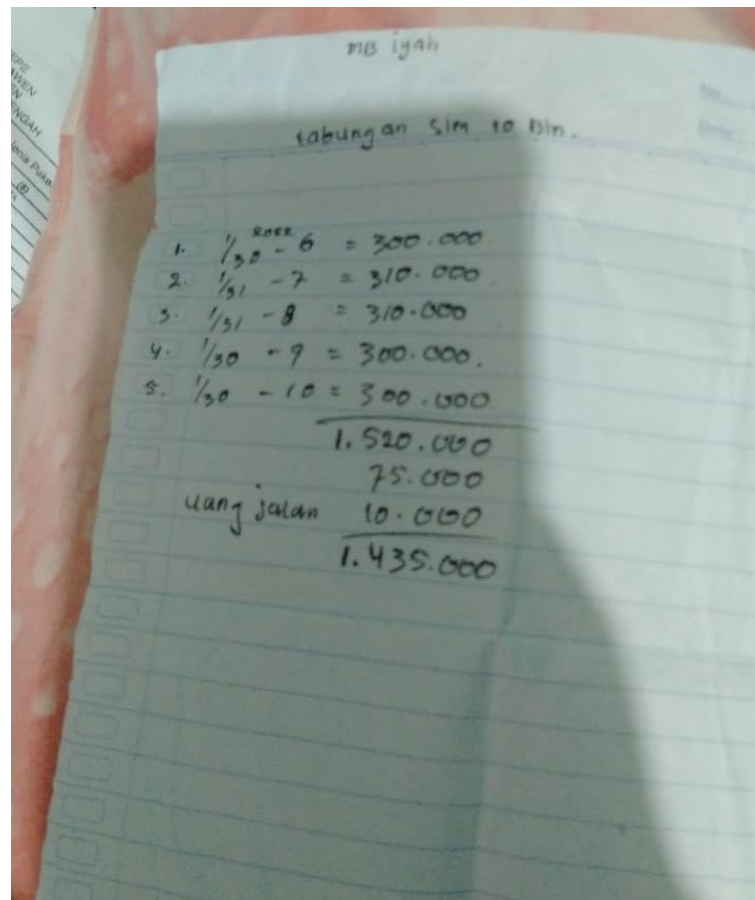 MB iyah
tabungan Sim 10 Bln.
1. 1/30 2022 - 6 = 300.000
2. 1/31 - 7 = 310.000
3. 1/31 - 8 = 310.000
4. 1/30 - 9 = 300.000.
5. 1/30 - 10 = 300.000
1.520.000
75.000
uang jalan 10.000
1.435.000
NGAH